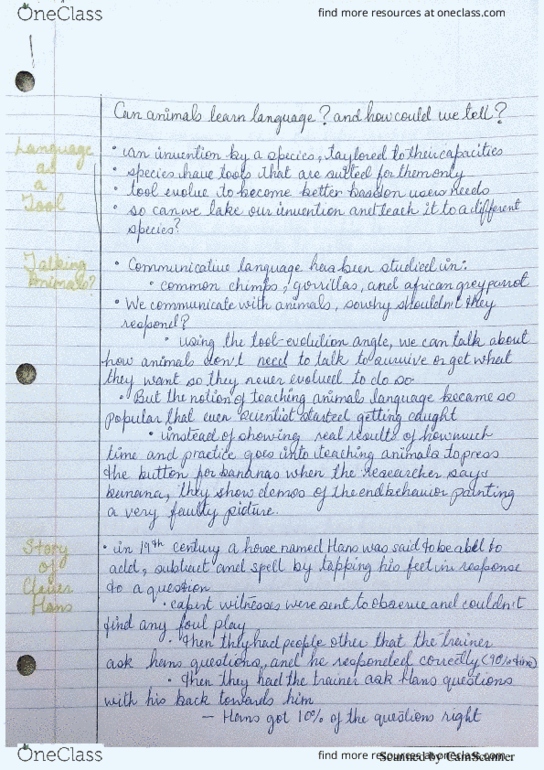 OneClass
find more resources at oneclass.com
Can animals learn language? and how could we tell?
Language
as
a
Tool
• an invention by a species, taylored to their capacities
• species have tools that are suited for them only
• tool evolve to become better based on users needs
• so can we take our invention and teach it to a different
species?
Talking
Animals?
• Communicative language has been studied in:
• common chimps, gorrillas, and african grey parrot
• We communicate with animals, so why shouldn't they
respond?
• using the tool-evolution angle, we can talk about
how animals don't need to talk to survive or get what
they want so they never evolved to do so
• But the notion of teaching animals language became so
popular that even scientist started getting caught
• instead of showing real results of how much
time and practice goes into teaching animals to press
the button for bananas when the researcher says
banana, they show demos of the end behavior painting
a very faulty picture.
Story
of
Clever
Hans
• in 19th century a horse named Hans was said to be abel to
add, subtract and spell by tapping his feet in response
to a question
• expert witnesses were sent to observe and couldn't
find any foul play
• then they had people other that the trainer
ask hans questions, and he responded correctly (90% time)
• then they had the trainer ask Hans questions
with his back towards him
— Hans got 10% of the questions right
OneClass
find more resources at oneclass.com
Scanned by CamScanner